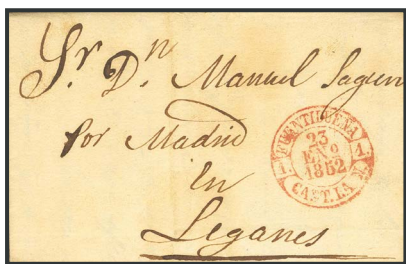 Sr. Dn. Manuel Sagun
por Madrid
en
Leganes
FUENTIDUEÑA
23
ENº
1852
1. 1.
CAST. LA N.